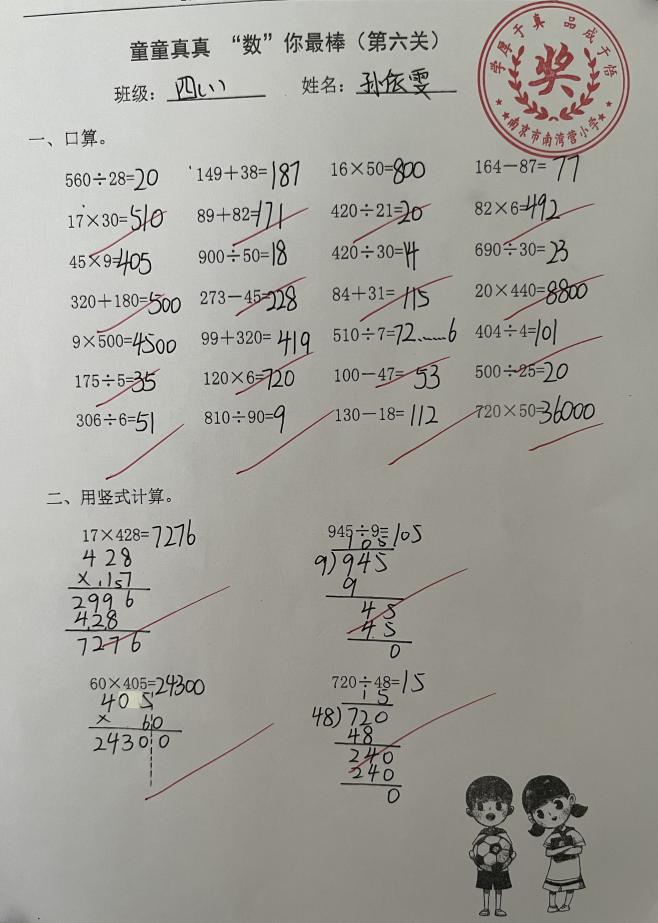 童童真真 “数”你最棒（第六关）
班级：四（1） 姓名：孙依雯
学厚于真 品成于悟
奖
南京市南湾营小学
一、口算。
560÷28=20 149+38=187 16×50=800 164-87=77
17×30=510 89+82=171 420÷21=20 82×6=492
45×9=405 900÷50=18 420÷30=14 690÷30=23
320+180=500 273-45=228 84+31=115 20×440=8800
9×500=4500 99+320=419 510÷7=72……6 404÷4=101
175÷5=35 120×6=720 100-47=53 500÷25=20
306÷6=51 810÷90=9 130-18=112 720×50=36000
二、用竖式计算。
17×428=7276 945÷9=105
428 105
×157 9)945
2996 9
428 45
7276 45
0
60×405=24300 720÷48=15
405 15
×60 48)720
24300 48
240
240
0